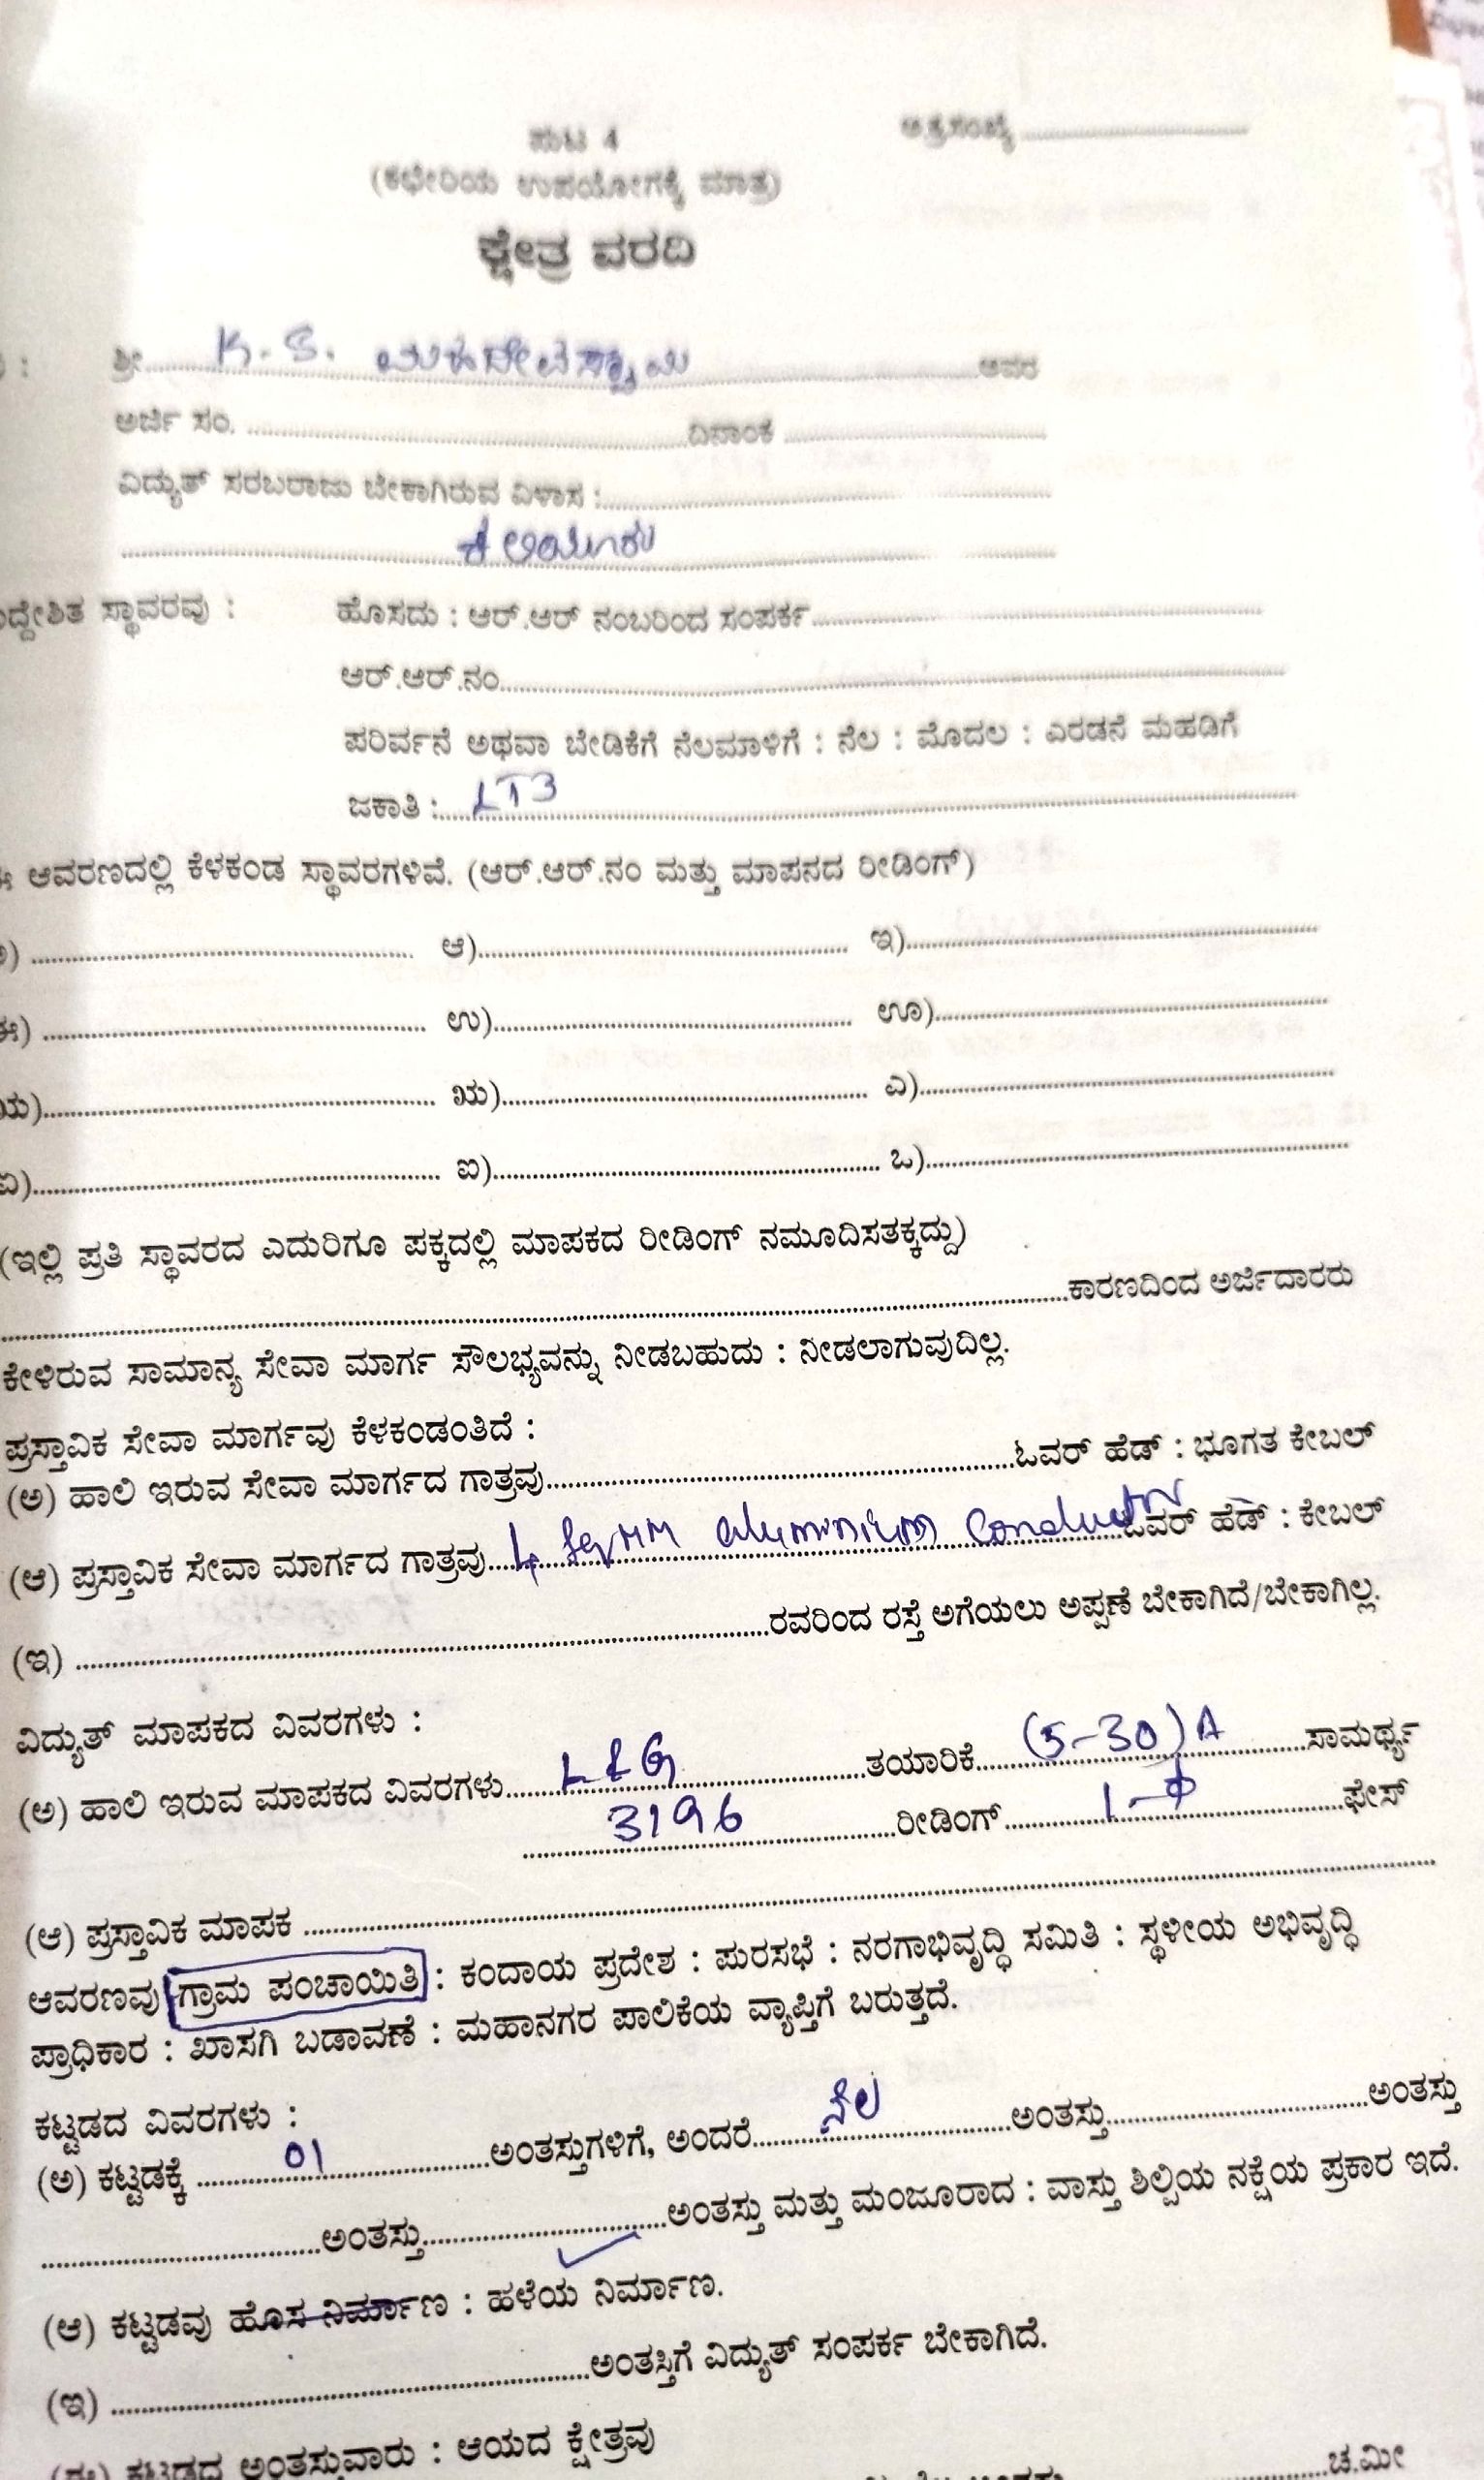 ಪುಟ 4
ಅ.ಕ್ರ.ಸಂಖ್ಯೆ
(ಕಛೇರಿಯ ಉಪಯೋಗಕ್ಕೆ ಮಾತ್ರ)
ಕ್ಷೇತ್ರ ವರದಿ
: ಶ್ರೀ K.S. ಮಹದೇವಸ್ವಾಮಿ ಅವರ
ಅರ್ಜಿ ಸಂ. ದಿನಾಂಕ
ವಿದ್ಯುತ್ ಸರಬರಾಜು ಬೇಕಾಗಿರುವ ವಿಳಾಸ :
ಕಲಿಯೂರು
ದ್ದೇಶಿತ ಸ್ಥಾವರವು : ಹೊಸದು : ಆರ್.ಆರ್ ನಂಬರಿಂದ ಸಂಪರ್ಕ
ಆರ್.ಆರ್.ನಂ
ಪರಿರ್ವನೆ ಅಥವಾ ಬೇಡಿಕೆಗೆ ನೆಲಮಾಳಿಗೆ : ನೆಲ : ಮೊದಲ : ಎರಡನೆ ಮಹಡಿಗೆ
ಜಕಾತಿ : LT3
ಈ ಆವರಣದಲ್ಲಿ ಕೆಳಕಂಡ ಸ್ಥಾವರಗಳಿವೆ. (ಆರ್.ಆರ್.ನಂ ಮತ್ತು ಮಾಪನದ ರೀಡಿಂಗ್)
ಅ) ಆ) ಇ)
ಈ) ಉ) ಊ)
ಋ) ೠ) ಎ)
ಏ) ಐ) ಒ)
(ಇಲ್ಲಿ ಪ್ರತಿ ಸ್ಥಾವರದ ಎದುರಿಗೂ ಪಕ್ಕದಲ್ಲಿ ಮಾಪಕದ ರೀಡಿಂಗ್ ನಮೂದಿಸತಕ್ಕದ್ದು)
ಕಾರಣದಿಂದ ಅರ್ಜಿದಾರರು
ಕೇಳಿರುವ ಸಾಮಾನ್ಯ ಸೇವಾ ಮಾರ್ಗ ಸೌಲಭ್ಯವನ್ನು ನೀಡಬಹುದು : ನೀಡಲಾಗುವುದಿಲ್ಲ.
ಪ್ರಸ್ತಾವಿಕ ಸೇವಾ ಮಾರ್ಗವು ಕೆಳಕಂಡಂತಿದೆ :
(ಅ) ಹಾಲಿ ಇರುವ ಸೇವಾ ಮಾರ್ಗದ ಗಾತ್ರವು ಓವರ್ ಹೆಡ್ : ಭೂಗತ ಕೇಬಲ್
(ಆ) ಪ್ರಸ್ತಾವಿಕ ಸೇವಾ ಮಾರ್ಗದ ಗಾತ್ರವು 4 sqmm aluminium conductor ಓವರ್ ಹೆಡ್ : ಕೇಬಲ್
(ಇ) ರವರಿಂದ ರಸ್ತೆ ಅಗೆಯಲು ಅಪ್ಪಣೆ ಬೇಕಾಗಿದೆ/ಬೇಕಾಗಿಲ್ಲ.
ವಿದ್ಯುತ್ ಮಾಪಕದ ವಿವರಗಳು :
(ಅ) ಹಾಲಿ ಇರುವ ಮಾಪಕದ ವಿವರಗಳು L&G ತಯಾರಿಕೆ (5-30)A ಸಾಮರ್ಥ್ಯ
3196 ರೀಡಿಂಗ್ 1-ϕ ಫೇಸ್
(ಆ) ಪ್ರಸ್ತಾವಿಕ ಮಾಪಕ
ಆವರಣವು ಗ್ರಾಮ ಪಂಚಾಯಿತಿ : ಕಂದಾಯ ಪ್ರದೇಶ : ಪುರಸಭೆ : ನರಗಾಭಿವೃದ್ಧಿ ಸಮಿತಿ : ಸ್ಥಳೀಯ ಅಭಿವೃದ್ಧಿ
ಪ್ರಾಧಿಕಾರ : ಖಾಸಗಿ ಬಡಾವಣೆ : ಮಹಾನಗರ ಪಾಲಿಕೆಯ ವ್ಯಾಪ್ತಿಗೆ ಬರುತ್ತದೆ.
ಕಟ್ಟಡದ ವಿವರಗಳು :
(ಅ) ಕಟ್ಟಡಕ್ಕೆ 01 ಅಂತಸ್ತುಗಳಿಗೆ, ಅಂದರೆ ನೆಲ ಅಂತಸ್ತು ಅಂತಸ್ತು
ಅಂತಸ್ತು ಅಂತಸ್ತು ಮತ್ತು ಮಂಜೂರಾದ : ವಾಸ್ತು ಶಿಲ್ಪಿಯ ನಕ್ಷೆಯ ಪ್ರಕಾರ ಇದೆ.
(ಆ) ಕಟ್ಟಡವು ಹೊಸ ನಿರ್ಮಾಣ : ಹಳೆಯ ನಿರ್ಮಾಣ.
(ಇ) ಅಂತಸ್ತಿಗೆ ವಿದ್ಯುತ್ ಸಂಪರ್ಕ ಬೇಕಾಗಿದೆ.
(ಈ) ಕಟ್ಟಡದ ಅಂತಸ್ತುವಾರು : ಆಯದ ಕ್ಷೇತ್ರವು
ಚ.ಮೀ